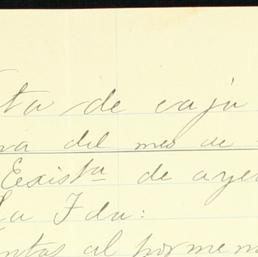 ta de caja
a del mes de
Exist.ª de ayer
La Fda:
ntas al pormen